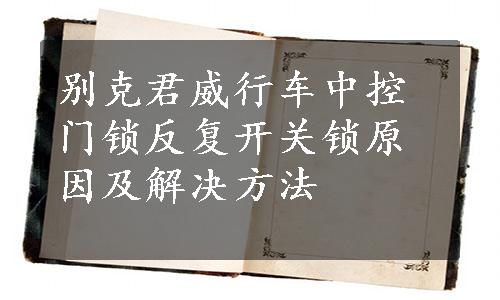 别克君威行车中控
门锁反复开关锁原
因及解决方法